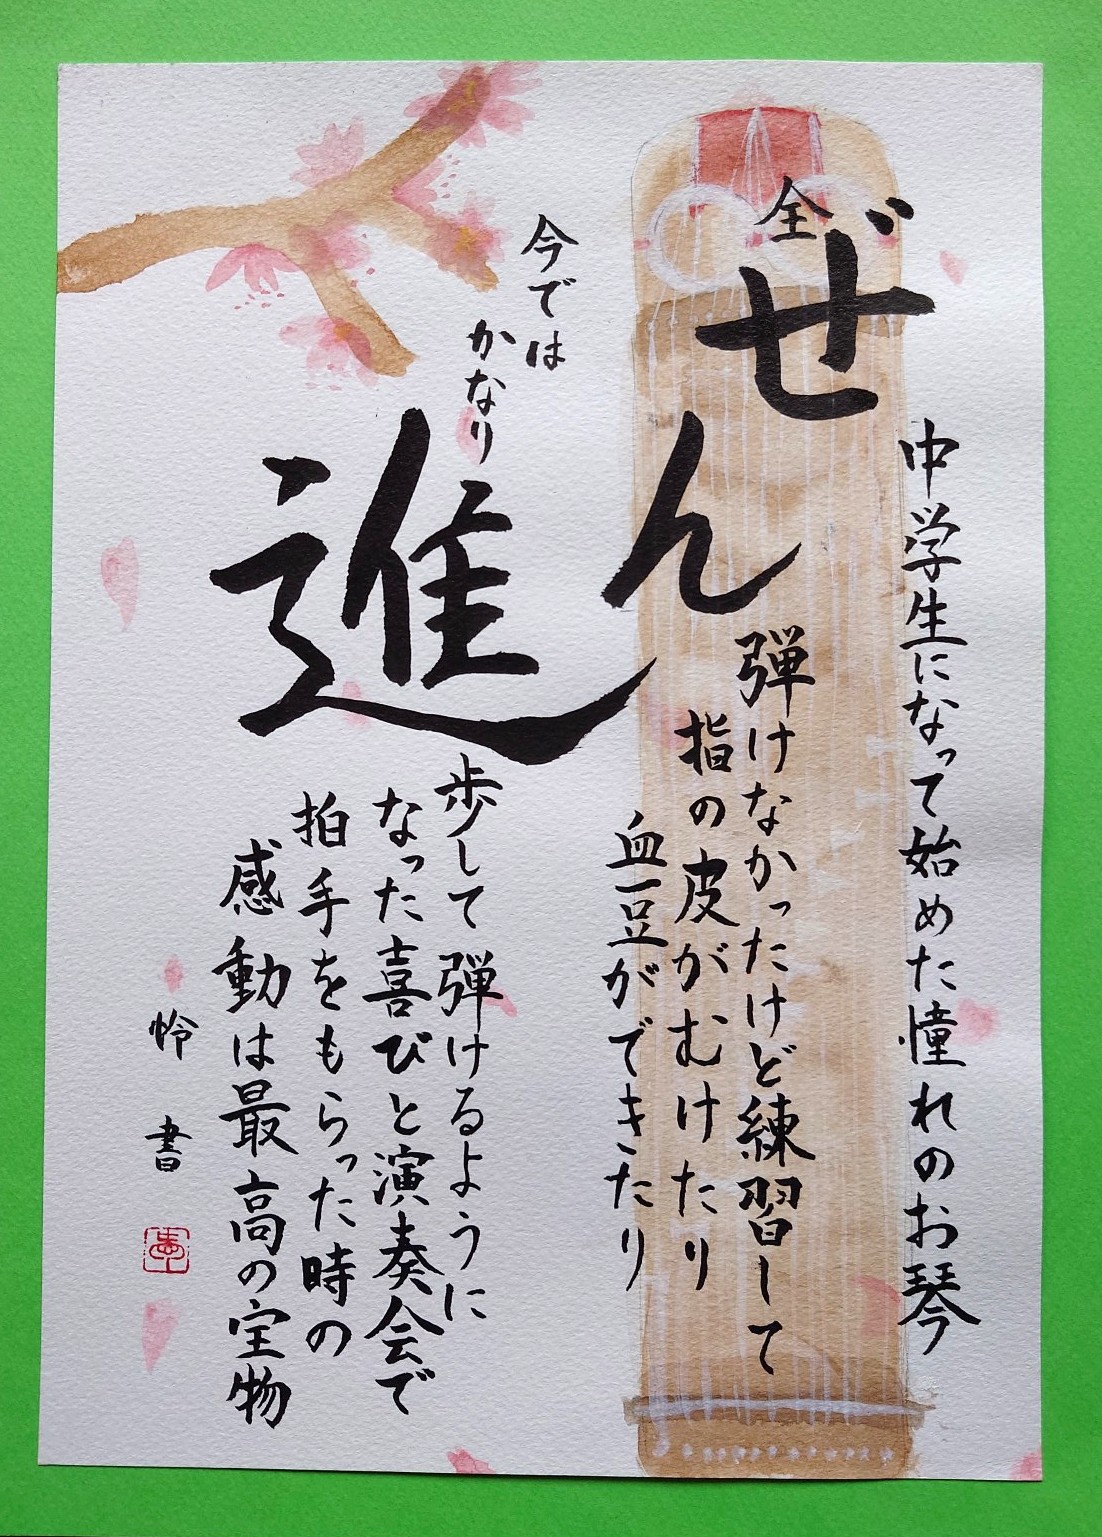 中学生になって始めた憧れのお琴
全
ぜん
弾けなかったけど練習して
指の皮がむけたり
血豆ができたり
今では
かなり
進
歩して弾けるように
なった喜びと演奏会で
拍手をもらった時の
感動は最高の宝物
怜 書